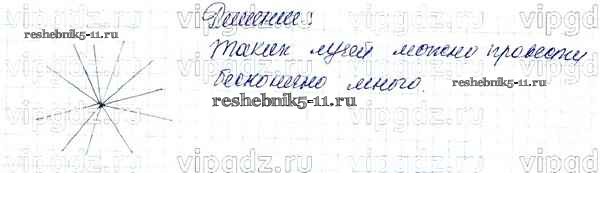 Решение:
Таких лучей можно провести
бесконечно много.
reshebnik5-11.ru
reshebnik5-11.ru
reshebnik5-11.ru
vipgdz.ru
vipgdz.ru
vipgdz.ru
vipgdz.ru
vipgdz.ru
vipgdz.ru